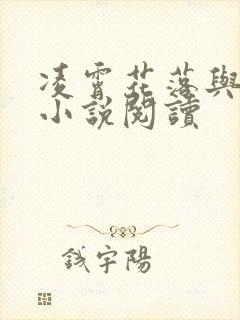 凌霄花落與
小說閱讀
錢宇陽